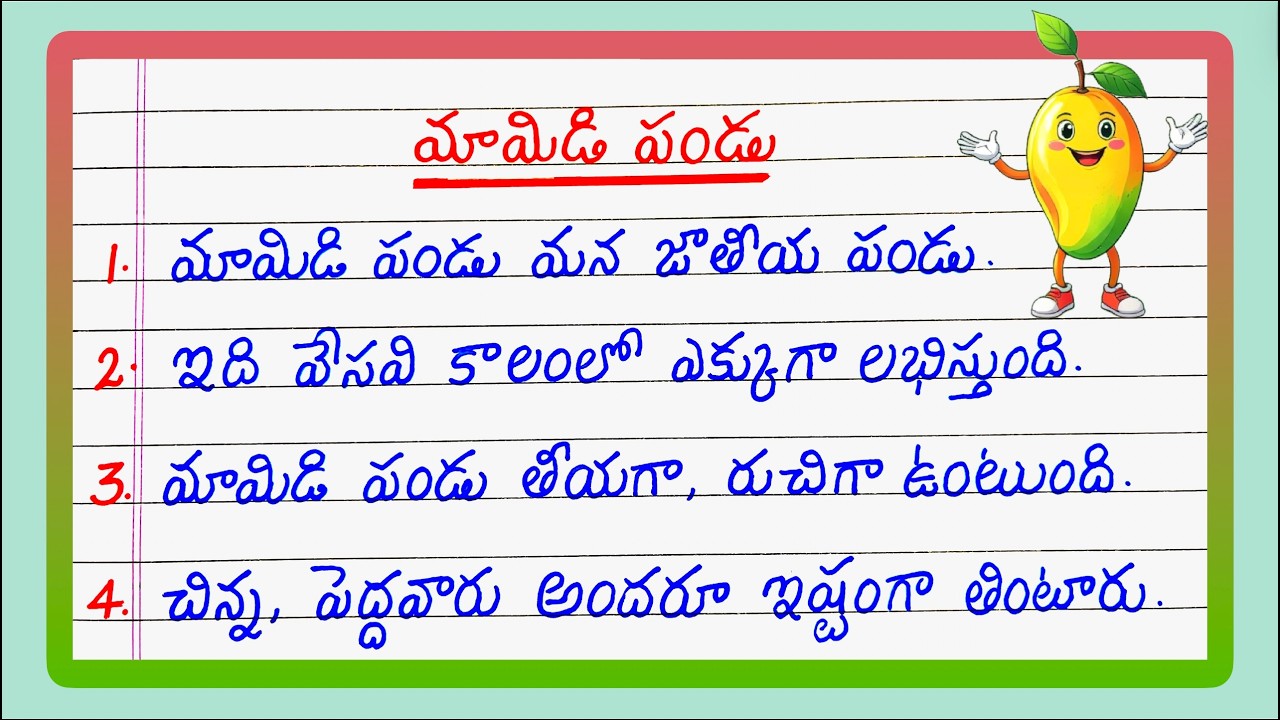 మామిడి పండు
1. మామిడి పండు మన జాతీయ పండు.
2. ఇది వేసవి కాలంలో ఎక్కుగా లభిస్తుంది.
3. మామిడి పండు తీయగా, రుచిగా ఉంటుంది.
4. చిన్న, పెద్దవారు అందరూ ఇష్టంగా తింటారు.